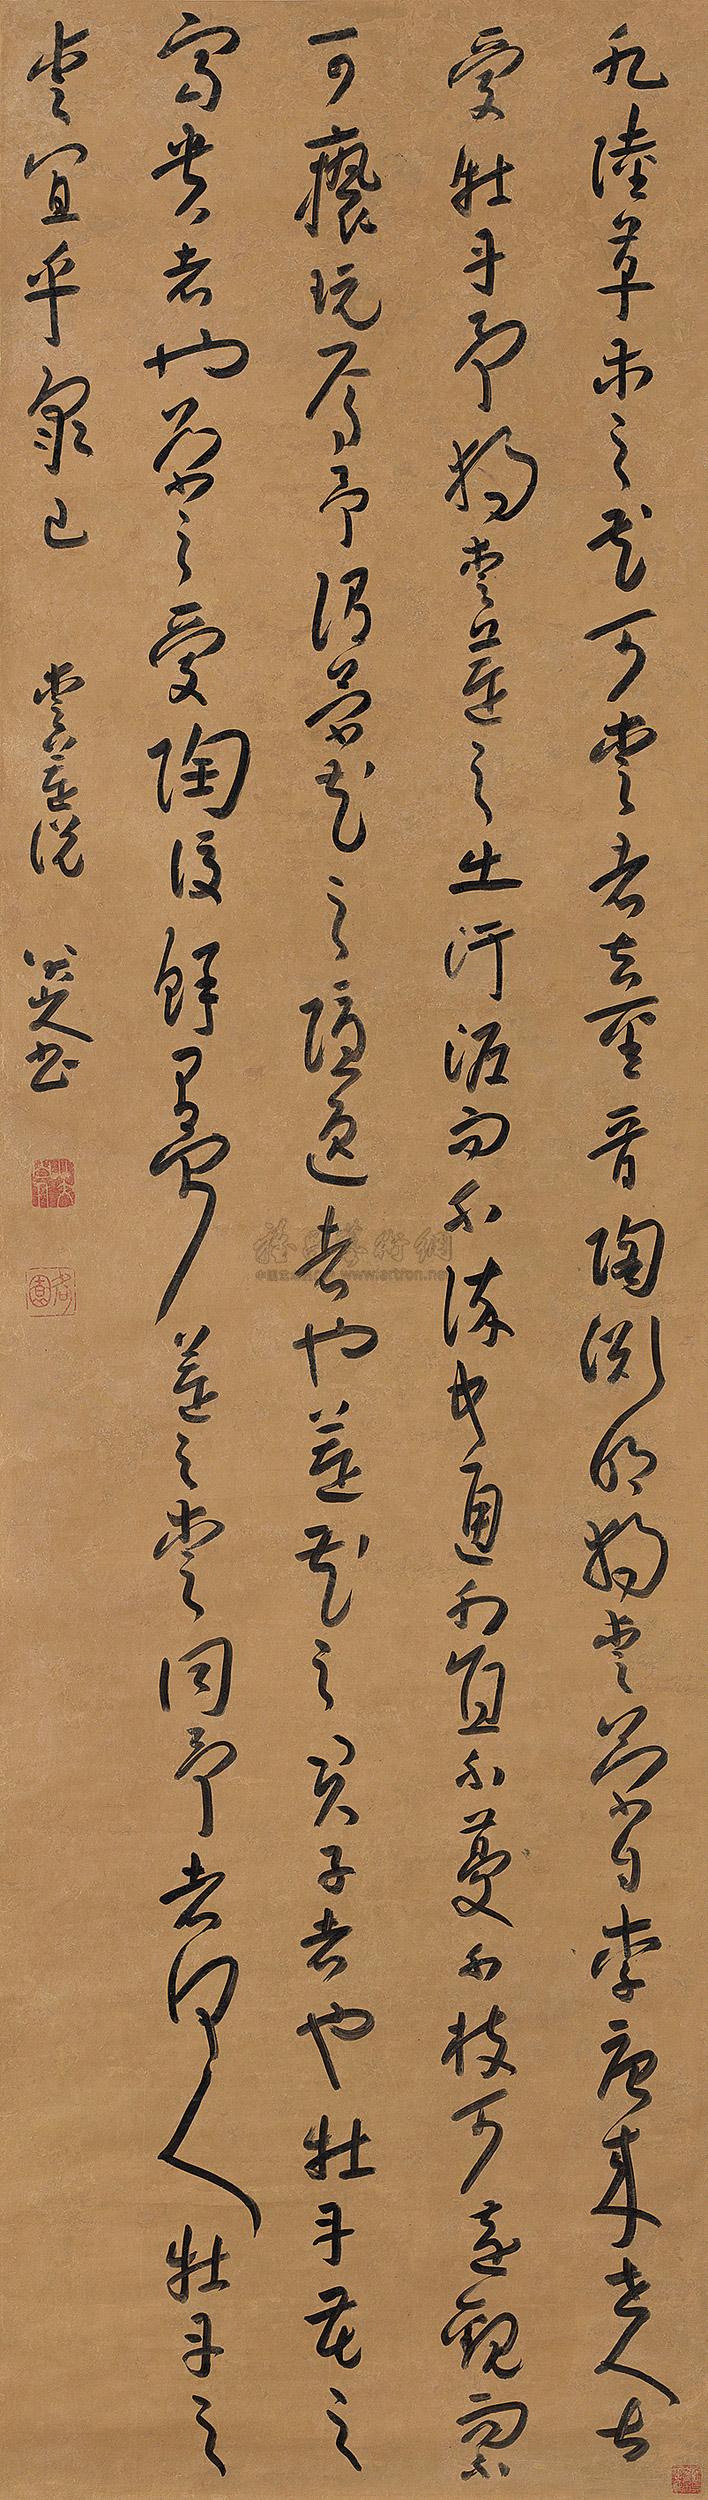 陸草木之花可愛者甚晉陶淵明獨愛菊自李唐來世人甚
愛牡丹予獨愛蓮之出汙泥而不染中通外直不蔓不枝可遠觀而不
可褻玩焉予謂菊花之隱逸者也蓮花之君子者也牡丹花之
富貴者也菊之愛陶後鮮有聞蓮之愛同予者何人牡丹之
愛宜乎眾已 愛蓮說 八大山人書
雅昌藝術網
www.artron.net